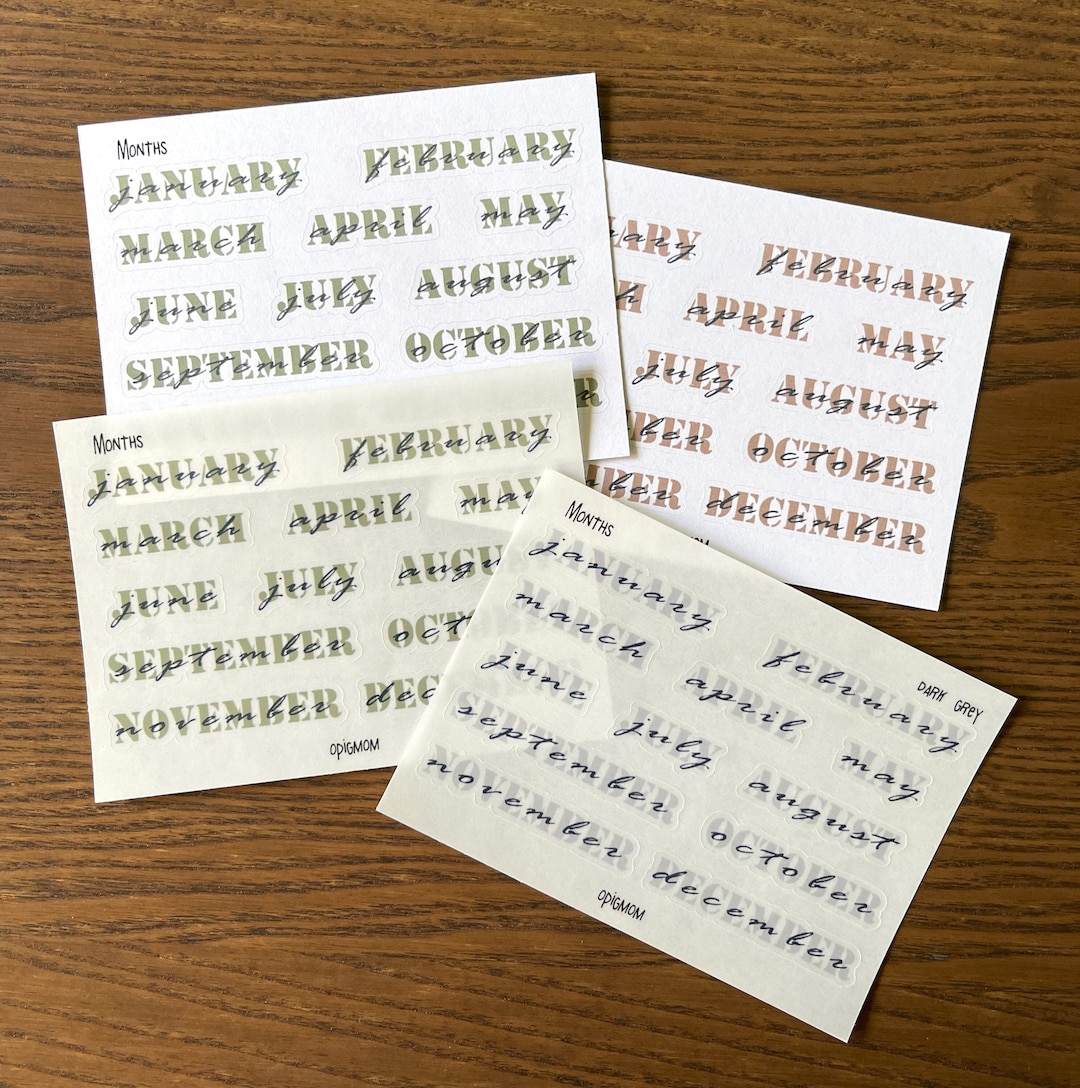 Months
JANUARY january FEBRUARY february
MARCH march APRIL april MAY may
JUNE june JULY july AUGUST august
SEPTEMBER september OCTOBER october
R
ARY ary FEBRUARY february
H h APRIL april MAY may
JULY july AUGUST august
BER ber OCTOBER october
BER ber DECEMBER december
Months
JANUARY january FEBRUARY february
MARCH march APRIL april MAY may
JUNE june JULY july AUGU augu
SEPTEMBER september OCT oct
NOVEMBER november DEC dec
OPIGMOM
Months
DARK GREY
JANUARY january FEBRUARY february
MARCH march APRIL april MAY may
JUNE june JULY july AUGUST august
SEPTEMBER september OCTOBER october
NOVEMBER november DECEMBER december
OPIGMOM